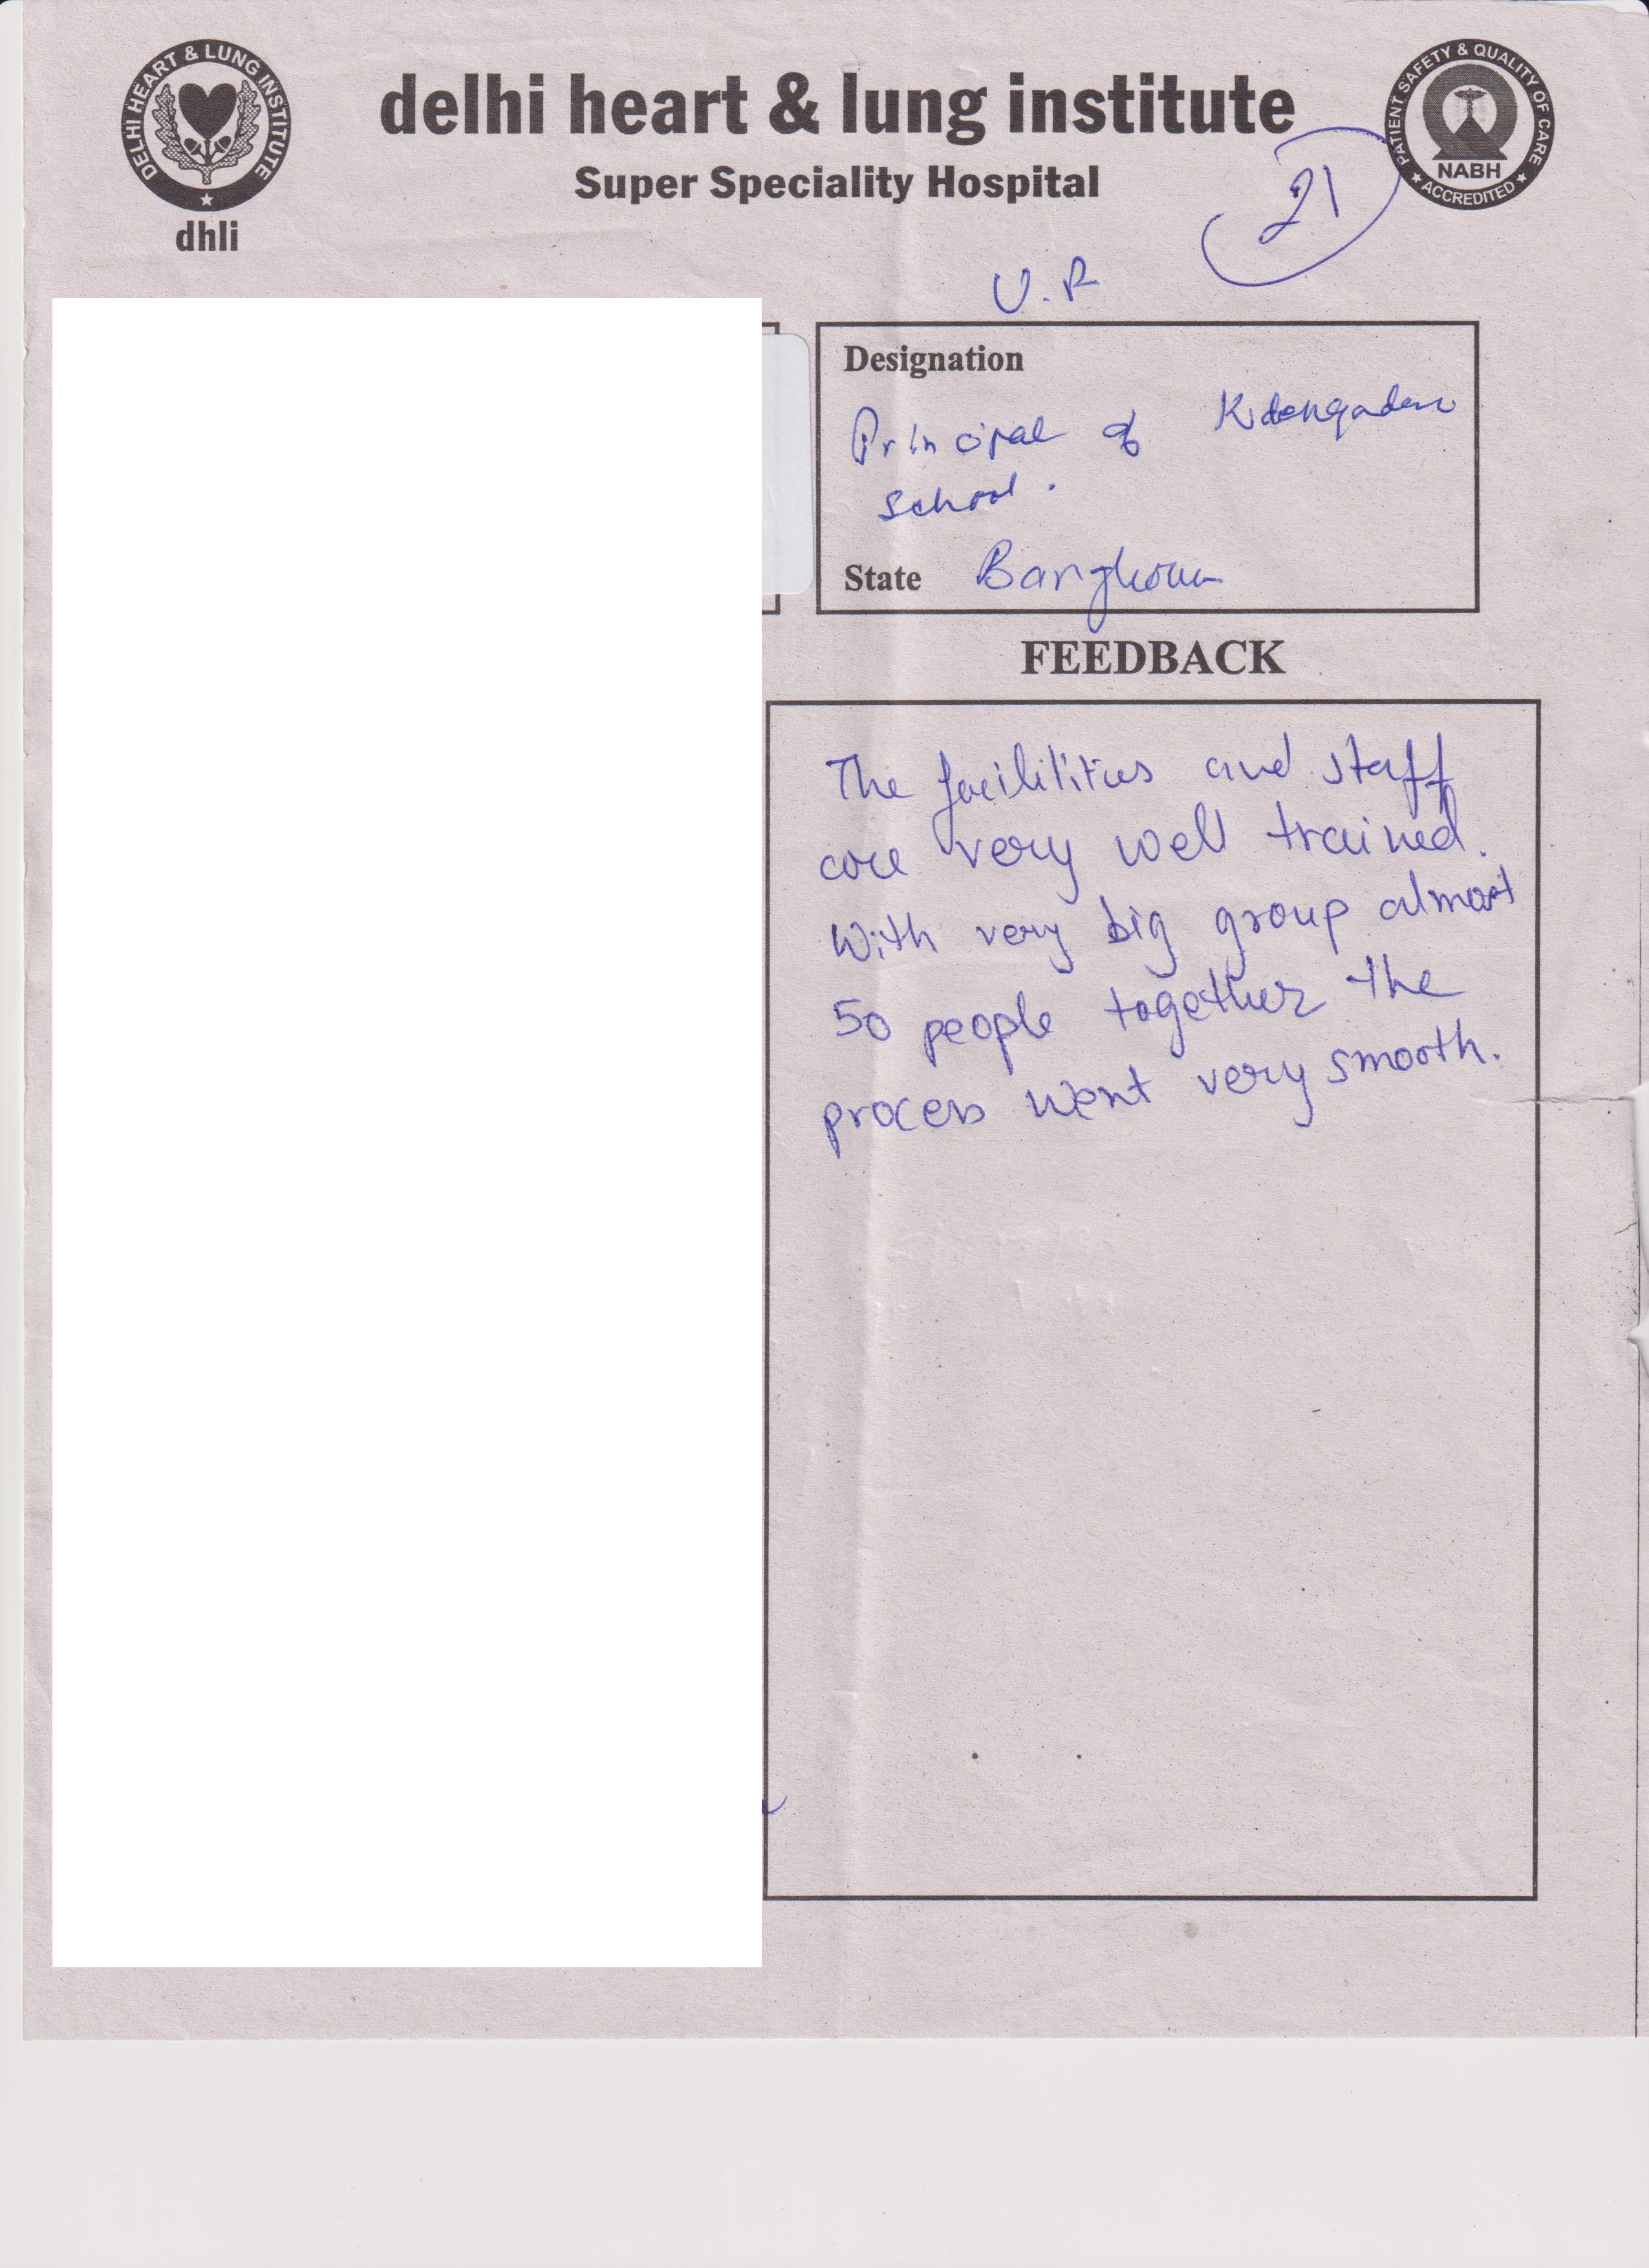 DELHI HEART & LUNG INSTITUTE
dhli
delhi heart & lung institute
Super Speciality Hospital
PATIENT SAFETY & QUALITY OF CARE
NABH
ACCREDITED
21
Designation
Principal of
School.
State
FEEDBACK
The facilities and staff
are very well trained.
With very big group almost
50 people together the
process went very smooth.